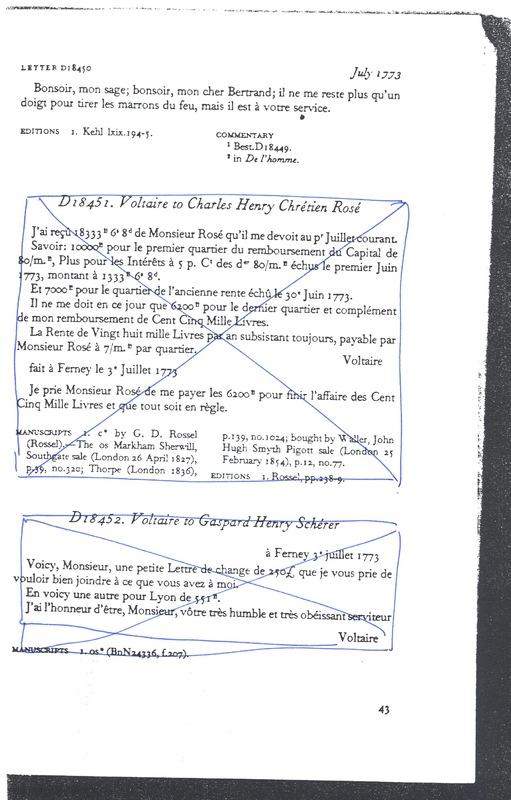 LETTER D18450
July 1773
Bonsoir, mon sage; bonsoir, mon cher Bertrand; il ne me reste plus qu'un
doigt pour tirer les marrons du feu, mais il est à votre service.
EDITIONS 1. Kehl lxix.194-5.
COMMENTARY
¹ Best.D18449.
² in De l'homme.
D18451. Voltaire to Charles Henry Chrétien Rosé
J'ai reçu 18333ᵗᵗ 6ˢ 8ᵈ de Monsieur Rosé qu'il me devoit au pʳ Juillet courant.
Savoir: 10000ᵗᵗ pour le premier quartier du remboursement du Capital de
80/m.ᵗᵗ, Plus pour les Intérêts à 5 p. Cᵗ des dᵉʳ 80/m.ᵗᵗ échus le premier Juin
1773, montant à 1333ᵗᵗ 6ˢ 8ᵈ.
Et 7000ᵗᵗ pour le quartier de l'ancienne rente échû le 30ᵉ Juin 1773.
Il ne me doit en ce jour que 6200ᵗᵗ pour le dernier quartier et complément
de mon remboursement de Cent Cinq Mille Livres.
La Rente de Vingt huit mille Livres par an subsistant toujours, payable par
Monsieur Rosé à 7/m.ᵗᵗ par quartier.
Voltaire
fait à Ferney le 3ᵉ Juillet 1773
Je prie Monsieur Rosé de me payer les 6200ᵗᵗ pour finir l'affaire des Cent
Cinq Mille Livres et que tout soit en règle.
MANUSCRIPTS 1. c* by G. D. Rossel
(Rossel).—The os Markham Sherwill,
Southgate sale (London 26 April 1827),
p.39, no.320; Thorpe (London 1836),
p.139, no.1024; bought by Waller, John
Hugh Smyth Pigott sale (London 25
February 1854), p.12, no.77.
EDITIONS 1. Rossel, pp.238-9.
D18452. Voltaire to Gaspard Henry Schérer
à Ferney 3ᵉ juillet 1773
Voicy, Monsieur, une petite Lettre de change de 250£, que je vous prie de
vouloir bien joindre à ce que vous avez à moi.
En voicy une autre pour Lyon de 551ᵗᵗ.
J'ai l'honneur d'être, Monsieur, vôtre très humble et très obéissant serviteur
Voltaire
MANUSCRIPTS 1. os* (BnN24336, f.207).
43